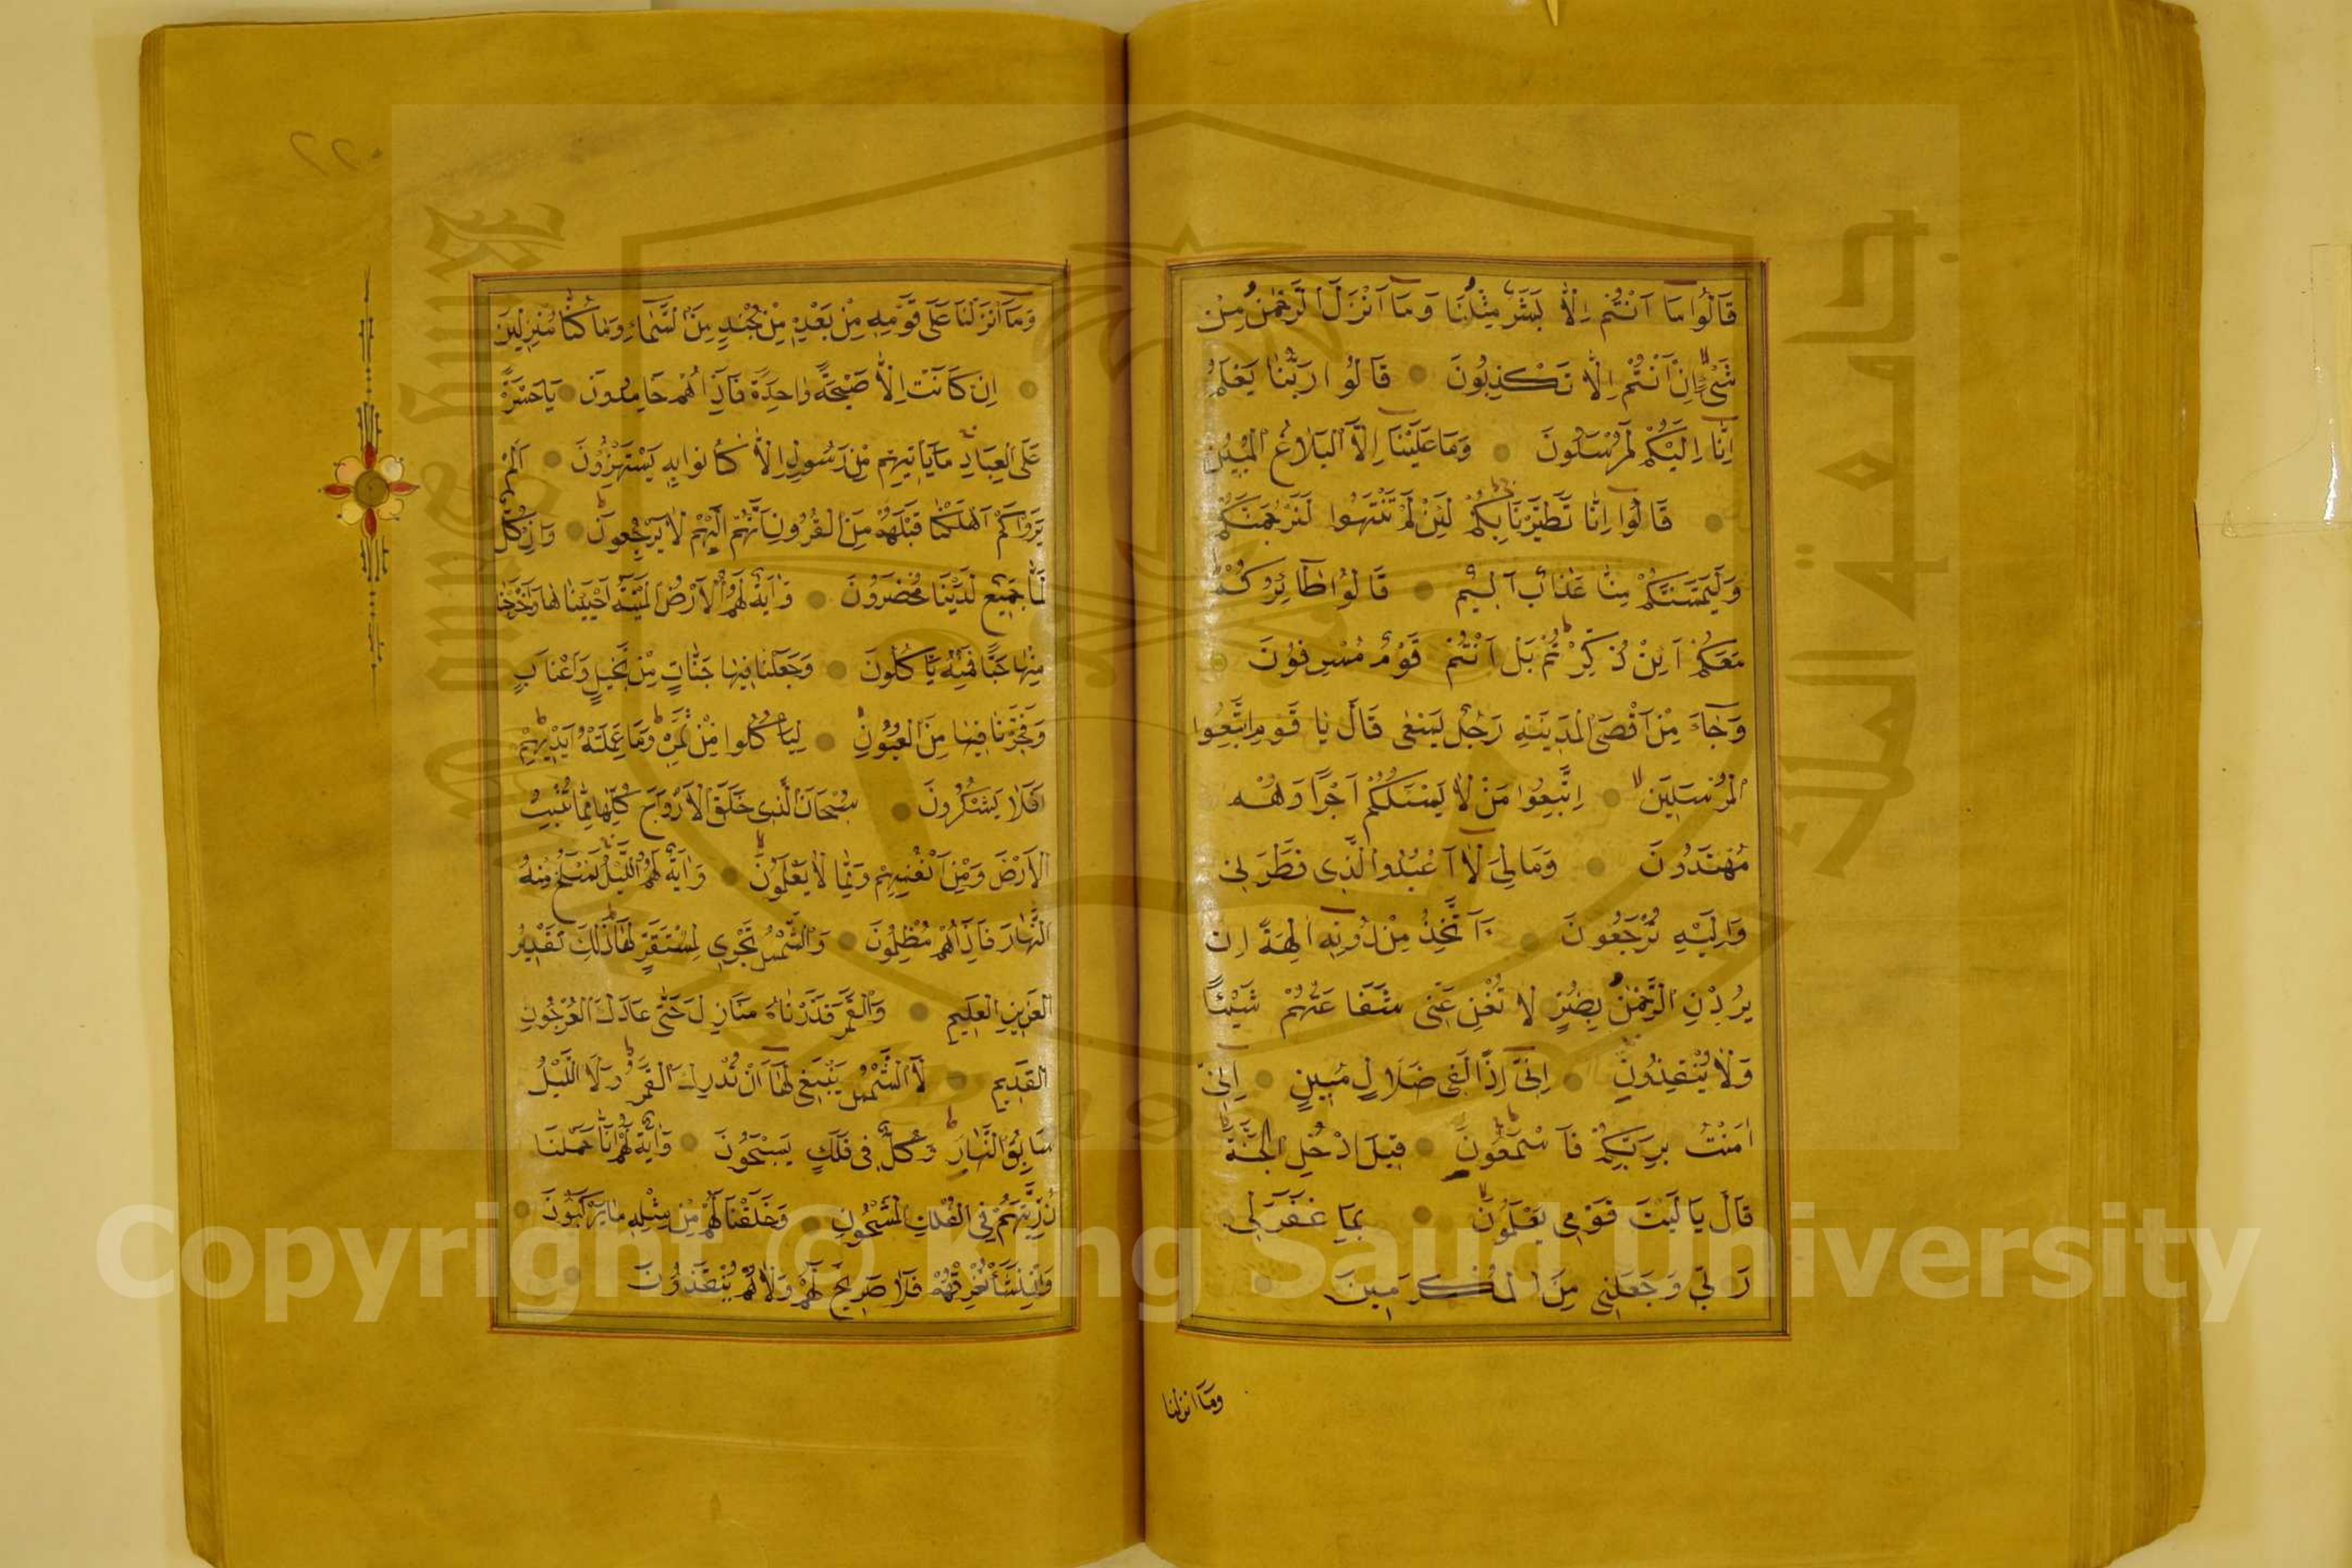 قَالُوا مَا اَنْتُمْ اِلَّا بَشَرٌ مِثْلُنَا وَمَا اَنْزَلَ الرَّحْمٰنُ مِنْ
شَىْءٍ اِنْ اَنْتُمْ اِلَّا تَكْذِبُونَ قَالُوا رَبُّنَا يَعْلَمُ
اِنَّا اِلَيْكُمْ لَمُرْسَلُونَ وَمَا عَلَيْنَا اِلَّا الْبَلَاغُ الْمُبِينُ
قَالُوا اِنَّا تَطَيَّرْنَا بِكُمْ لَئِنْ لَمْ تَنْتَهُوا لَنَرْجُمَنَّكُمْ
وَلَيَمَسَّنَّكُمْ مِنَّا عَذَابٌ اَلِيمٌ قَالُوا طَائِرُكُمْ
مَعَكُمْ اَئِنْ ذُكِّرْتُمْ بَلْ اَنْتُمْ قَوْمٌ مُسْرِفُونَ
وَجَاءَ مِنْ اَقْصَى الْمَدِينَةِ رَجُلٌ يَسْعٰى قَالَ يَا قَوْمِ اتَّبِعُوا
الْمُرْسَلِينَ اِتَّبِعُوا مَنْ لَا يَسْئَلُكُمْ اَجْرًا وَهُمْ
مُهْتَدُونَ وَمَا لِىَ لَا اَعْبُدُ الَّذِى فَطَرَنِى
وَاِلَيْهِ تُرْجَعُونَ ءَاَتَّخِذُ مِنْ دُونِهِ اٰلِهَةً اِنْ
يُرِدْنِ الرَّحْمٰنُ بِضُرٍّ لَا تُغْنِ عَنِّى شَفَاعَتُهُمْ شَيْئًا
وَلَا يُنْقِذُونِ اِنِّى اِذًا لَفِى ضَلَالٍ مُبِينٍ اِنِّى
اٰمَنْتُ بِرَبِّكُمْ فَاسْمَعُونِ قِيلَ ادْخُلِ الْجَنَّةَ
قَالَ يَا لَيْتَ قَوْمِى يَعْلَمُونَ بِمَا غَفَرَ لِى
رَبِّى وَجَعَلَنِى مِنَ الْمُكْرَمِينَ
وَمَا اَنْزَلْنَا
وَمَا اَنْزَلْنَا عَلٰى قَوْمِهِ مِنْ بَعْدِهِ مِنْ جُنْدٍ مِنَ السَّمَاءِ وَمَا كُنَّا مُنْزِلِينَ
اِنْ كَانَتْ اِلَّا صَيْحَةً وَاحِدَةً فَاِذَا هُمْ خَامِدُونَ يَا حَسْرَةً
عَلَى الْعِبَادِ مَا يَاْتِيهِمْ مِنْ رَسُولٍ اِلَّا كَانُوا بِهِ يَسْتَهْزِؤُنَ اَلَمْ
يَرَوْا كَمْ اَهْلَكْنَا قَبْلَهُمْ مِنَ الْقُرُونِ اَنَّهُمْ اِلَيْهِمْ لَا يَرْجِعُونَ وَاِنْ كُلٌّ
لَمَّا جَمِيعٌ لَدَيْنَا مُحْضَرُونَ وَاٰيَةٌ لَهُمُ الْاَرْضُ الْمَيْتَةُ اَحْيَيْنَاهَا وَاَخْرَجْنَا
مِنْهَا حَبًّا فَمِنْهُ يَاْكُلُونَ وَجَعَلْنَا فِيهَا جَنَّاتٍ مِنْ نَخِيلٍ وَاَعْنَابٍ
وَفَجَّرْنَا فِيهَا مِنَ الْعُيُونِ لِيَاْكُلُوا مِنْ ثَمَرِهِ وَمَا عَمِلَتْهُ اَيْدِيهِمْ
اَفَلَا يَشْكُرُونَ سُبْحَانَ الَّذِى خَلَقَ الْاَزْوَاجَ كُلَّهَا مِمَّا تُنْبِتُ
الْاَرْضُ وَمِنْ اَنْفُسِهِمْ وَمِمَّا لَا يَعْلَمُونَ وَاٰيَةٌ لَهُمُ اللَّيْلُ نَسْلَخُ مِنْهُ
النَّهَارَ فَاِذَا هُمْ مُظْلِمُونَ وَالشَّمْسُ تَجْرِى لِمُسْتَقَرٍّ لَهَا ذٰلِكَ تَقْدِيرُ
الْعَزِيزِ الْعَلِيمِ وَالْقَمَرَ قَدَّرْنَاهُ مَنَازِلَ حَتّٰى عَادَ كَالْعُرْجُونِ
الْقَدِيمِ لَا الشَّمْسُ يَنْبَغِى لَهَا اَنْ تُدْرِكَ الْقَمَرَ وَلَا اللَّيْلُ
سَابِقُ النَّهَارِ وَكُلٌّ فِى فَلَكٍ يَسْبَحُونَ وَاٰيَةٌ لَهُمْ اَنَّا حَمَلْنَا
ذُرِّيَّتَهُمْ فِى الْفُلْكِ الْمَشْحُونِ وَخَلَقْنَا لَهُمْ مِنْ مِثْلِهِ مَا يَرْكَبُونَ
وَاِنْ نَشَأْ نُغْرِقْهُمْ فَلَا صَرِيخَ لَهُمْ وَلَا هُمْ يُنْقَذُونَ
Copyright © King Saud University